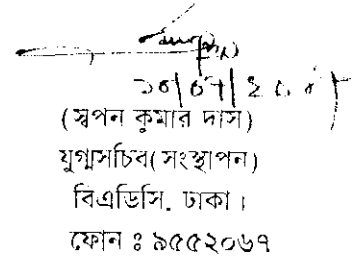 (স্বপন কুমার দাস)
যুগ্মসচিব(সংস্থাপন)
বিএডিসি. ঢাকা।
ফোন ঃ ৯৫৫২০৬৭